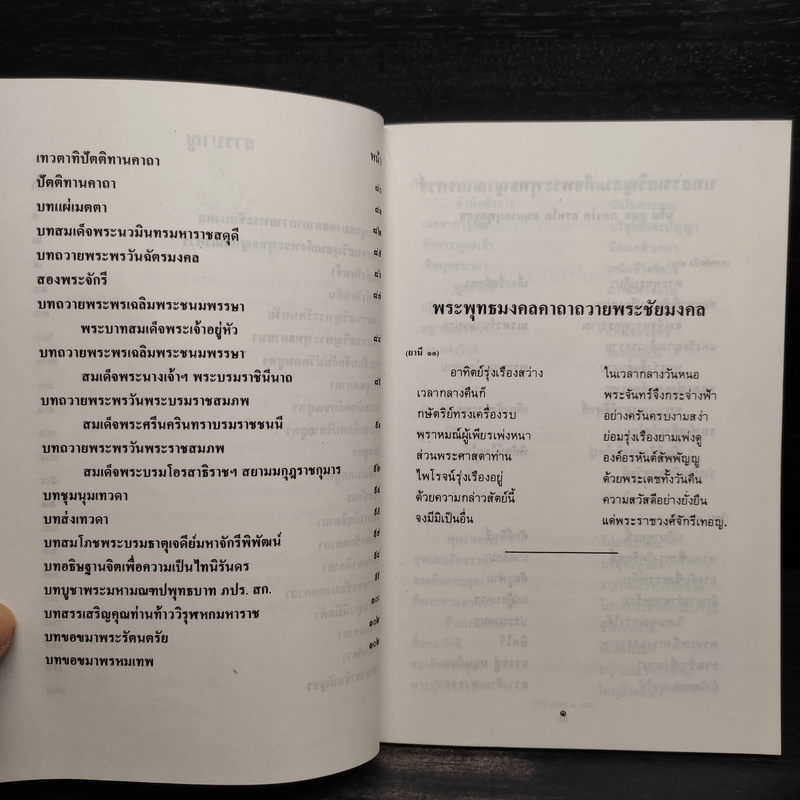 หน้า
เทวตาทิปัตติทานคาถา
ปัตติทานคาถา ๘๐
บทแผ่เมตตา ๘๑
บทสมเด็จพระนวมินทรมหาราชสดุดี ๘๒
บทถวายพระพรวันฉัตรมงคล ๘๕
สองพระจักรี ๘๖
บทถวายพระพรเฉลิมพระชนมพรรษา ๘๗
พระบาทสมเด็จพระเจ้าอยู่หัว
บทถวายพระพรเฉลิมพระชนมพรรษา ๘๘
สมเด็จพระนางเจ้าฯ พระบรมราชินีนาถ
บทถวายพระพรวันพระบรมราชสมภพ
สมเด็จพระศรีนครินทราบรมราชชนนี
บทถวายพระพรวันพระราชสมภพ
สมเด็จพระบรมโอรสาธิราชฯ สยามมกุฎราชกุมาร
บทชุมนุมเทวดา
บทส่งเทวดา
บทสมโภชพระบรมธาตุเจดีย์มหาจักรีพิพัฒน์
บทอธิษฐานจิตเพื่อความเป็นไทนิรันดร
บทบูชาพระมหามณฑปพุทธบาท ภปร. สก.
บทสรรเสริญคุณท่านท้าววิรุฬหกมหาราช ๑๐๐
บทขอขมาพระรัตนตรัย ๑๐๒
บทขอขมาพรหมเทพ ๑๐๒
พระพุทธมงคลคาถาถวายพระชัยมงคล
(ยานี ๑๑)
อาทิตย์รุ่งเรืองสว่าง ในเวลากลางวันหนอ
เวลากลางคืนก็ พระจันทร์จึงกระจ่างฟ้า
กษัตริย์ทรงเครื่องรบ อย่างครันครบงามสง่า
พราหมณ์ผู้เพียรเพ่งหนา ย่อมรุ่งเรืองยามเพ่งดู
ส่วนพระศาสดาท่าน องค์อรหันต์สัพพัญญู
ไพโรจน์รุ่งเรืองอยู่ ด้วยพระเดชทั้งวันคืน
ด้วยความกล่าวสัตย์นี้ ความสวัสดีอย่างยั่งยืน
จงมีมิเป็นอื่น แด่พระราชวงศ์จักรีเทอญ.
๑